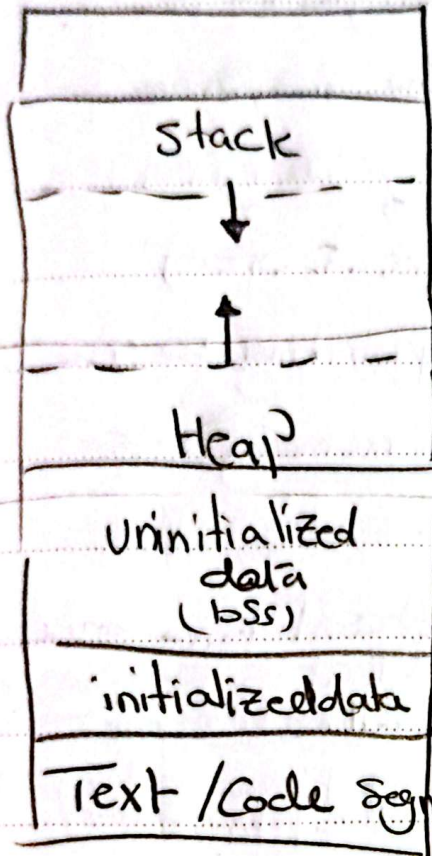 stack
Heap
Uninitialized
data
(bss)
initialized data
Text / Code Seg